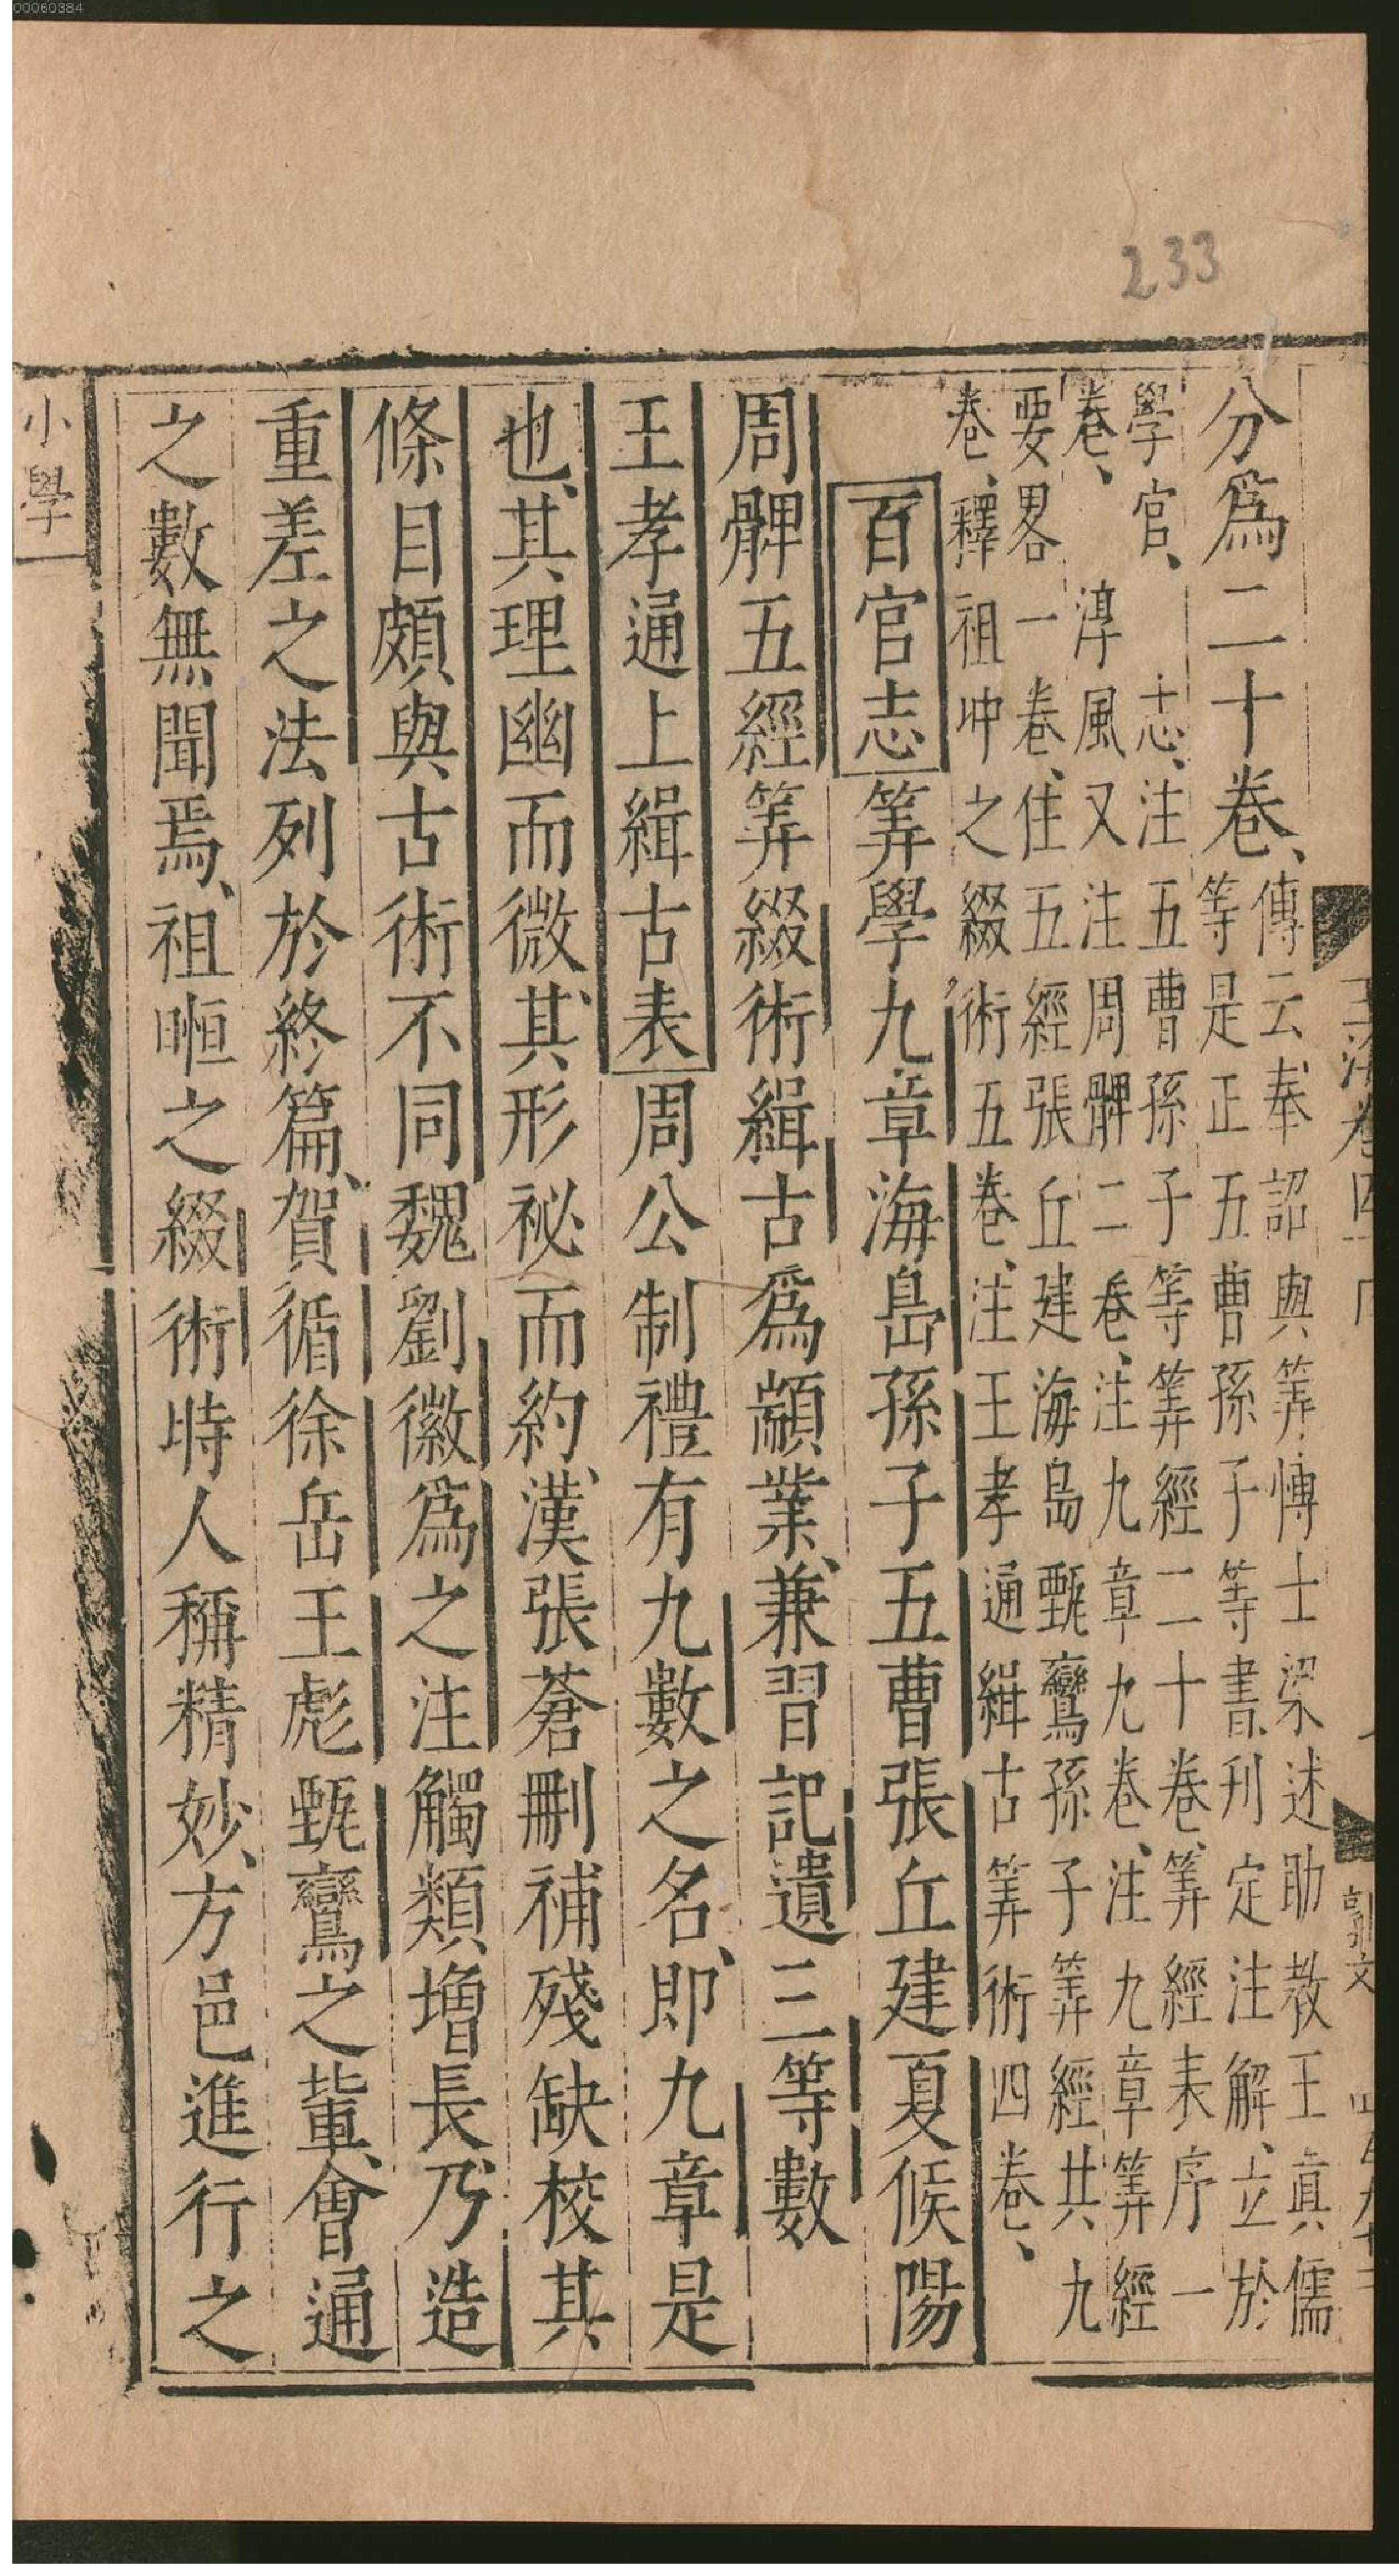 00060384
233
分爲二十卷、傳云奉詔與筭博士梁述助教王眞儒
等是正五曹孫子等書刊定注解、立於
學官、志、注五曹孫子等筭經二十卷、筭經表序一
卷、淳風又注周髀二卷、注九章九卷、注九章筭經
要畧一卷、住五經張丘建海島甄鸞孫子筭經共九
卷、釋祖冲之綴術五卷、注王孝通緝古筭術四卷、
百官志筭學九章海島孫子五曹張丘建夏候陽
周髀五經筭綴術緝古爲顓業、兼習記遺三等數
王孝通上緝古表周公制禮有九數之名、即九章是
也、其理幽而微、其形祕而約、漢張蒼刪補殘缺校其
條目頗與古術不同魏劉徽爲之注觸類增長乃造
重差之法列於終篇、賀循徐岳王彪甄鸞之軰、會通
之數無聞焉、祖暅之綴術時人稱精妙、方邑進行之
小學